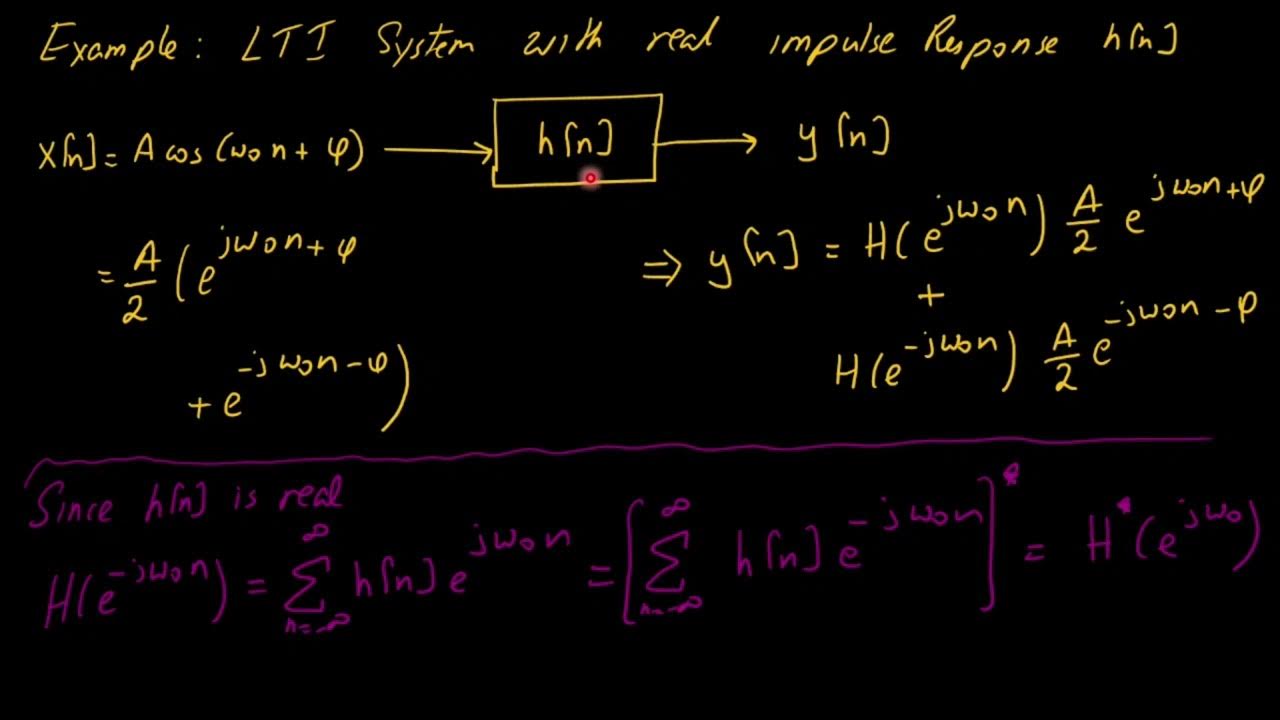 Example: LTI System with real impulse Response h[n]
x[n] = A cos(ω₀n + φ) → h[n] → y[n]
= A/2 (e^{jω₀n + φ}
+ e^{-jω₀n - φ})
⇒ y[n] = H(e^{jω₀n}) A/2 e^{jω₀n + φ}
+
H(e^{-jω₀n}) A/2 e^{-jω₀n - φ}
Since h[n] is real
H(e^{-jω₀n}) = ∑_{n=-∞}^{∞} h[n] e^{jω₀n} = [∑_{n=-∞}^{∞} h[n] e^{-jω₀n}]^* = H^*(e^{jω₀})